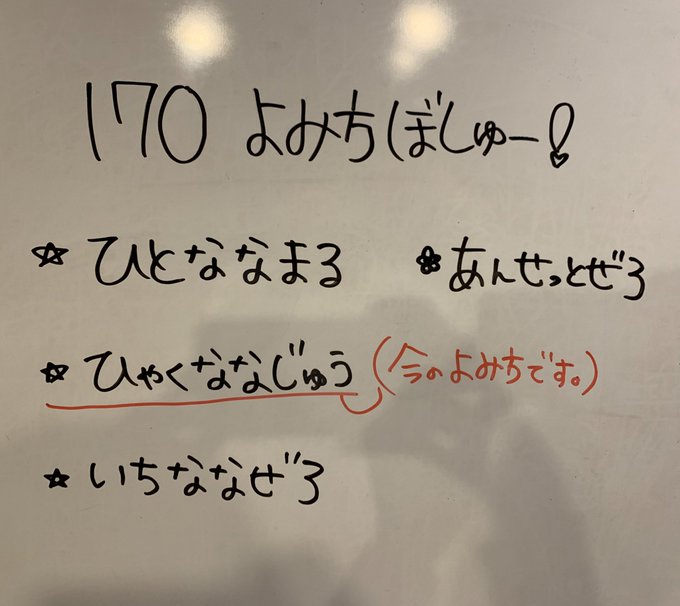 170 よみちぼしゅー!
☆ ひとななまる
❀ あんせっとぜろ
☆ ひゃくななじゅう (今のよみちです。)
☆ いちななぜろ